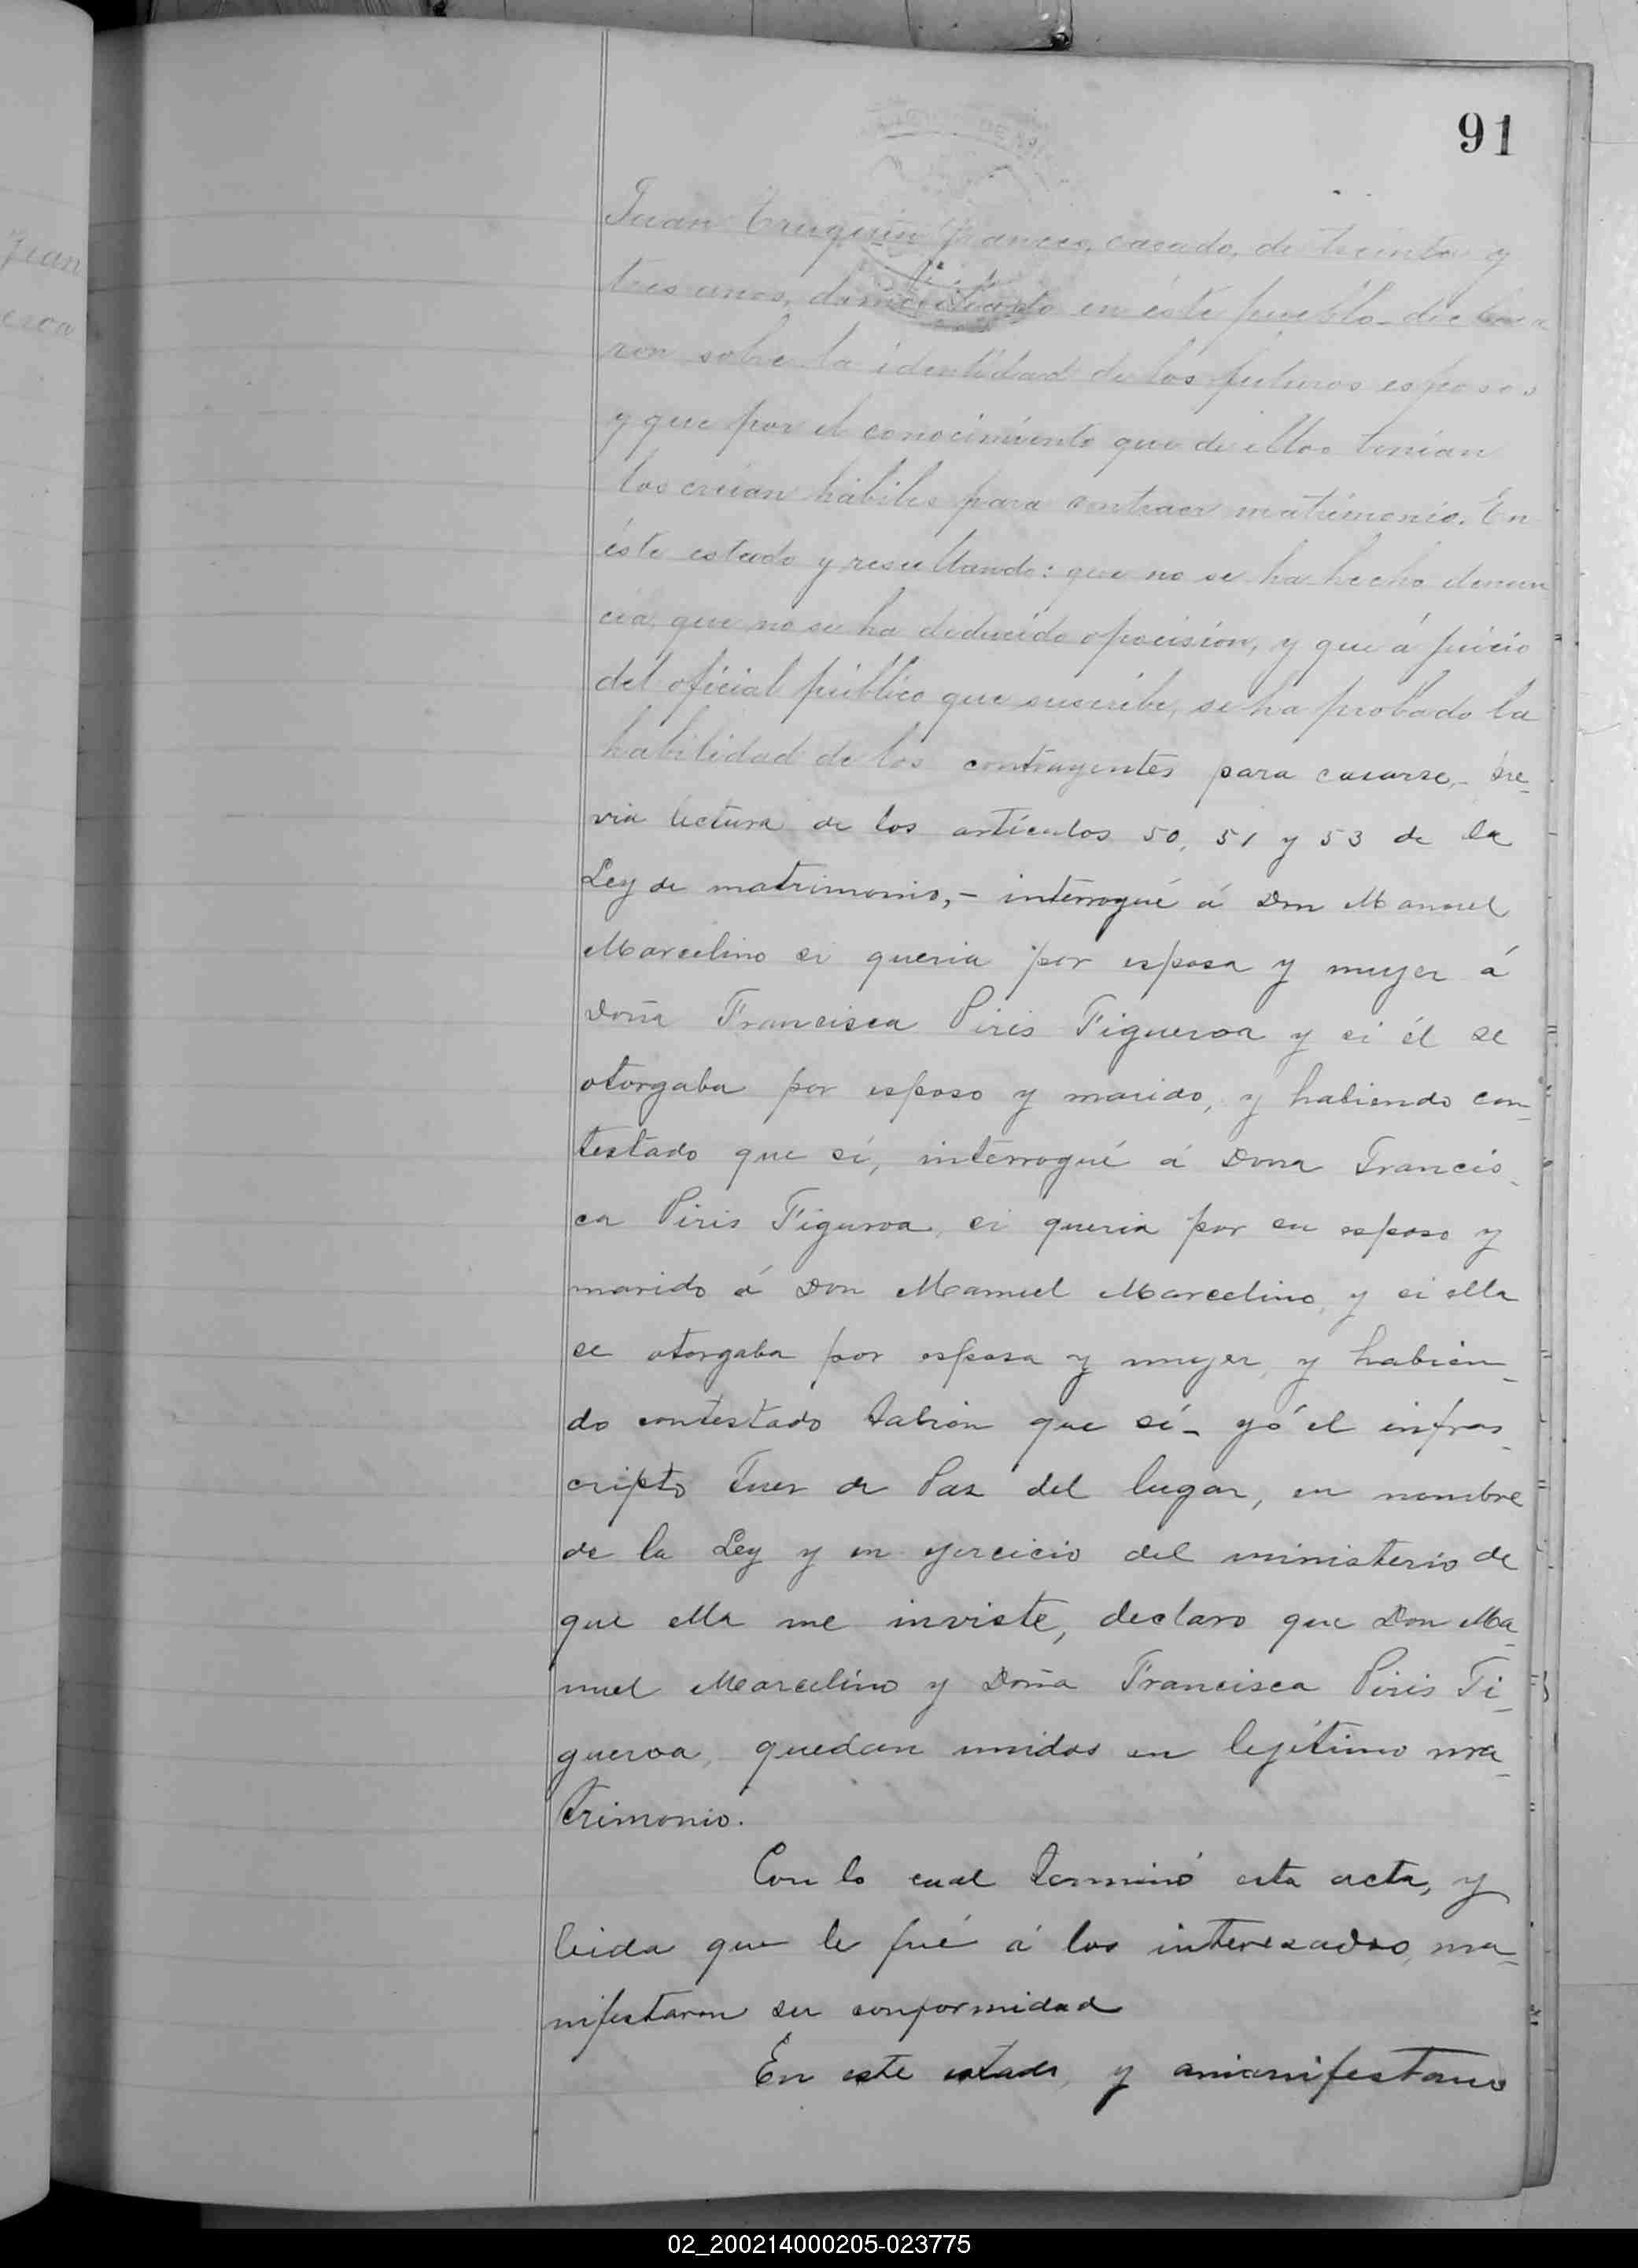 91
Juan Truquin frances, casado, de treinta y
tres anos, domiciliado en éste pueblo - declara
ron sobre la identidad de los futuros esposos
y que por el conocimiento que de ellos tenian
los creian hábiles para contraer matrimonio. En
éste estado y resultando: que no se ha hecho denun
cia, que no se ha deducido oposision, y que á juicio
del oficial público que suscribe, se ha probado la
habilidad de los contrayentes para casarse, - pre-
via lectura de los artículos 50, 51 y 53 de la
Ley de matrimonio, - interrogué á Don Manuel
Marcelino si queria por esposa y mujer á
Doña Francisca Piris Figueroa y si él se
otorgaba por esposo y marido, y habiendo con-
testado que sí, interrogué á Dona Francis-
ca Piris Figueroa, si queria por su esposo y
marido á Don Manuel Marcelino, y si ella
se otorgaba por esposa y mujer, y habien-
do contestado tabien que sí - yó el infras-
cripto Juez de Paz del lugar, en nombre
de la Ley y en ejercicio del ministerio de
que ella me inviste, declaro que Don Ma-
nuel Marcelino y Doña Francisca Piris Fi-
gueroa, quedan unidos en lejítimo ma-
trimonio.
Con lo cual terminó esta acta, y
leida que le fué á los interesados, ma-
nifestaron su conformidad
En este estado, y
Juan
02_200214000205-023775